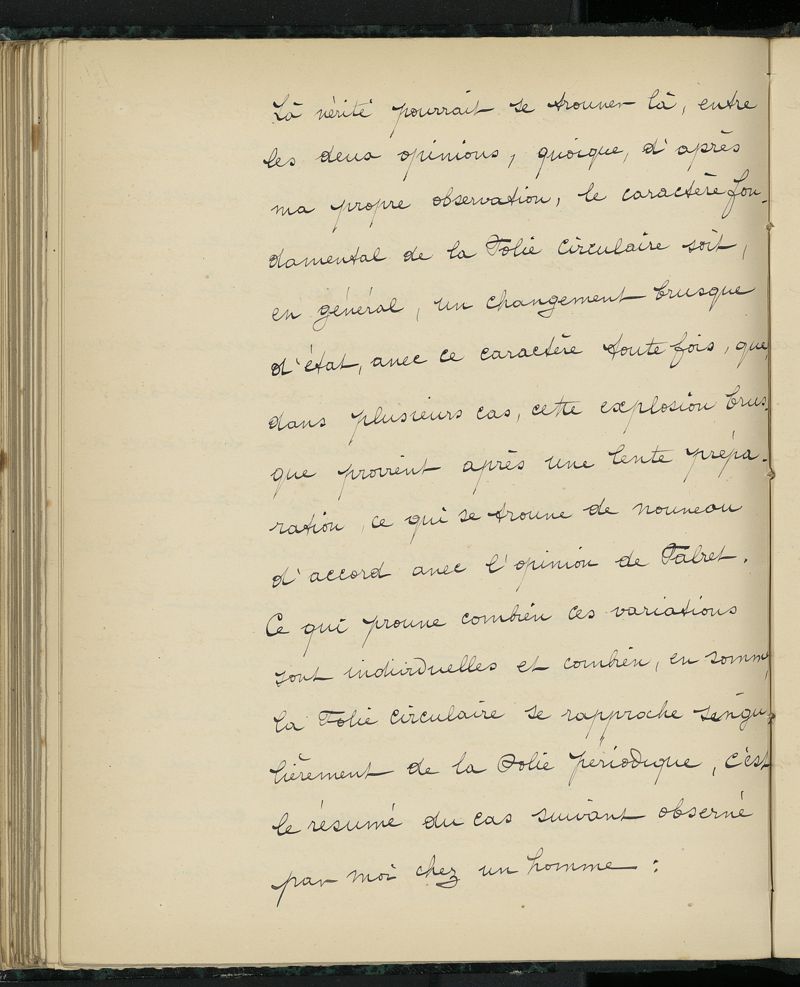 La vérité pourrait se trouver là, entre
les deux opinions, quoique, d'après
ma propre observation, le caractère fon-
damental de la Folie circulaire soit,
en général, un changement brusque
d'état, avec ce caractère toute fois, que,
dans plusieurs cas, cette explosion brus-
que provient après une lente prépa-
ration, ce qui se trouve de nouveau
d'accord avec l'opinion de Falret.
Ce qui prouve combien ces variations
sont individuelles et combien, en somme,
la Folie circulaire se rapproche singu-
lièrement de la Folie périodique, c'est
le résumé du cas suivant observé
par moi chez un homme :